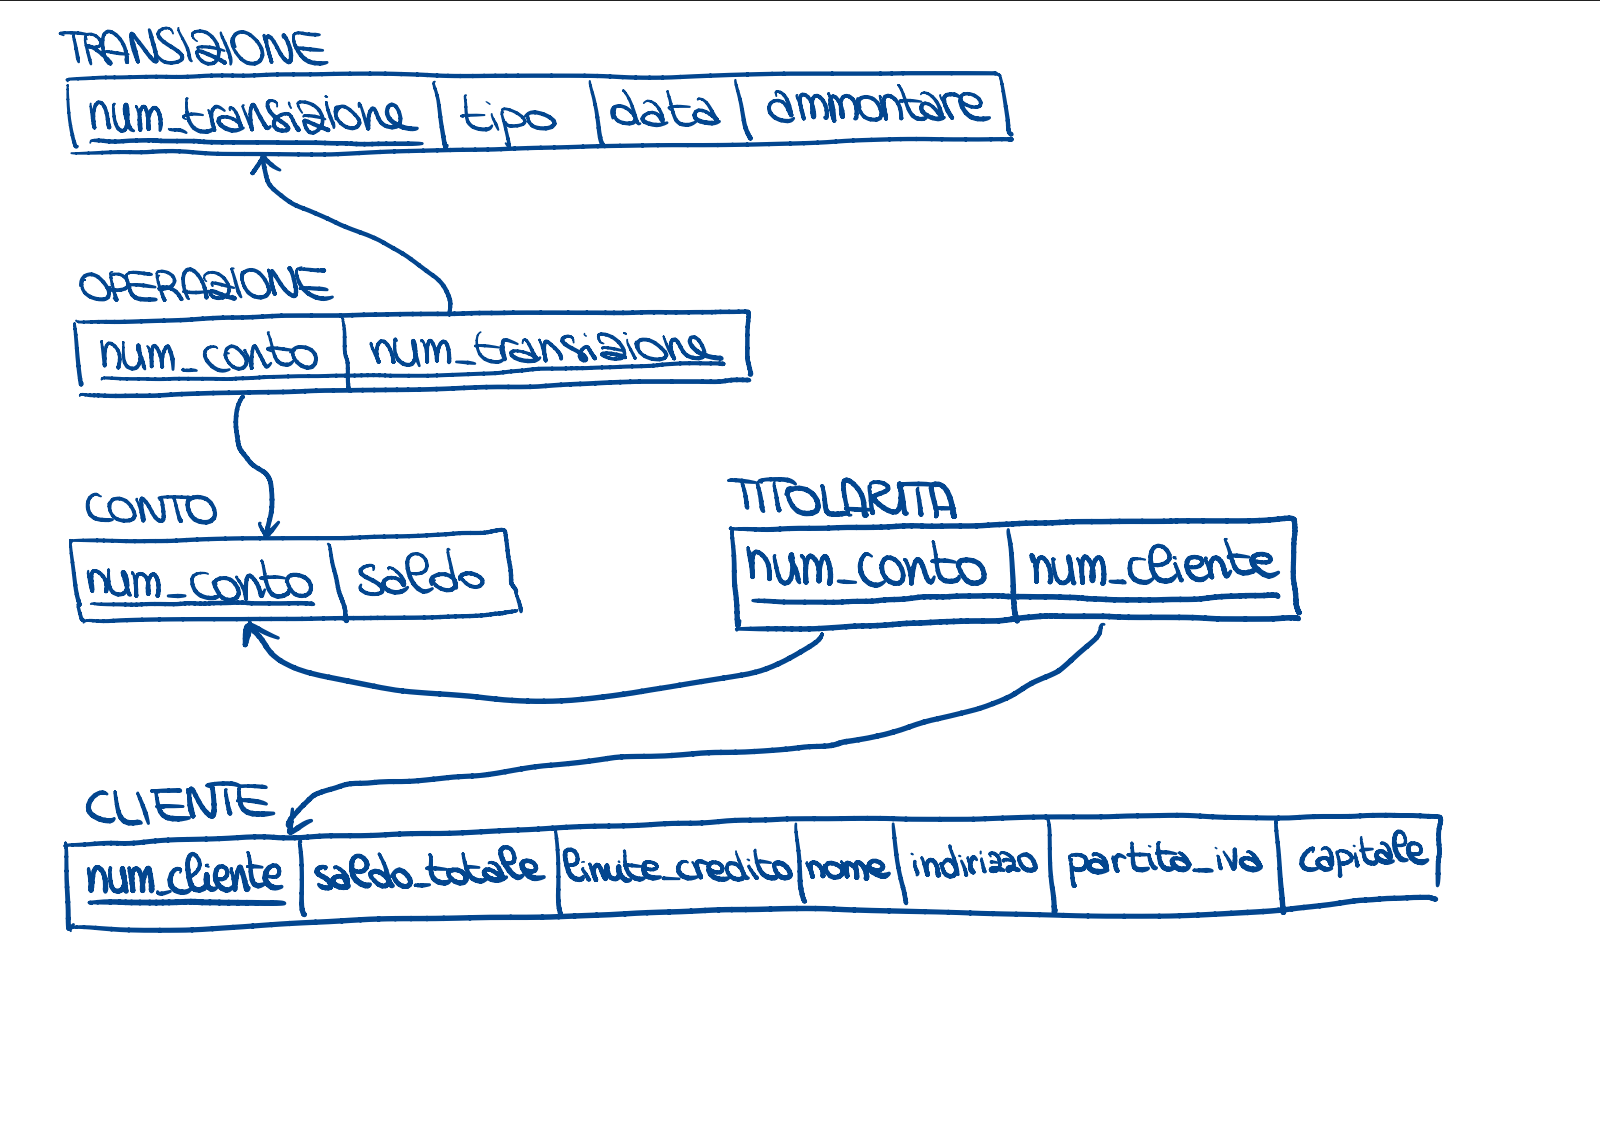 TRANSIZIONE
num_transizione tipo data ammontare
OPERAZIONE
num_conto num_transizione
CONTO
num_conto saldo
TITOLARITA
num_conto num_cliente
CLIENTE
num_cliente saldo_totale limite_credito nome indirizzo partita_iva capitale